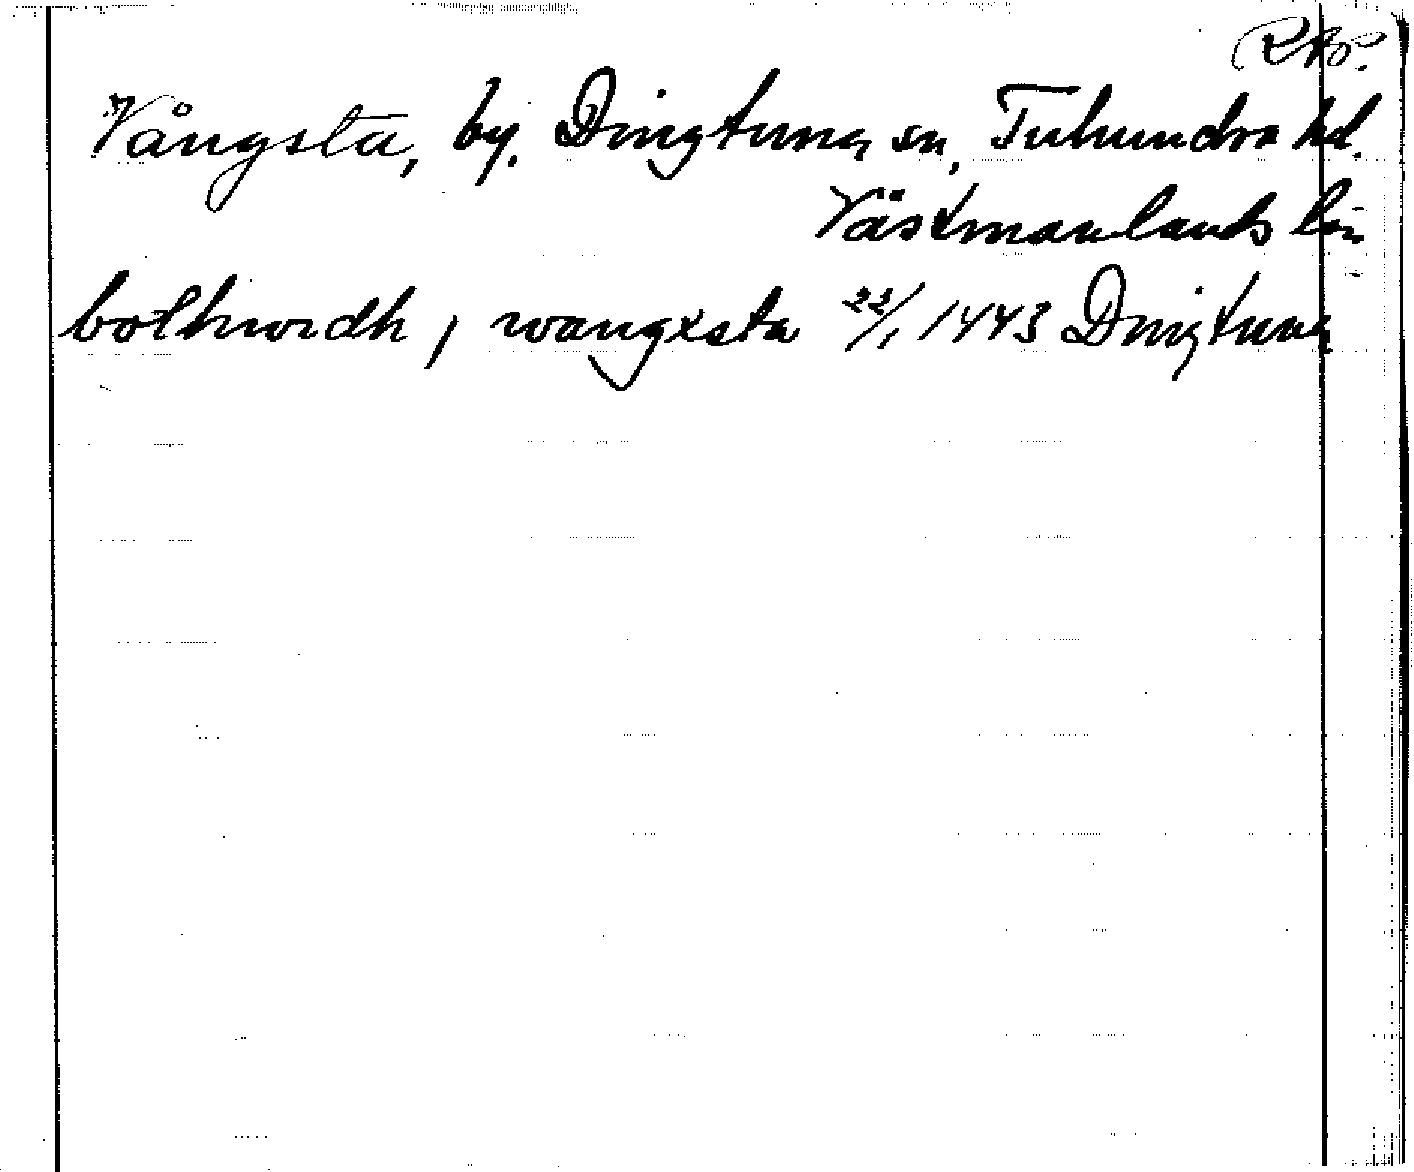 RAp.
Vångsta, by, Dingtuna sn, Tuhundra hd.
Västmanlands län
bolhwidh j wangxsta 22/1 1443 Dingtuna